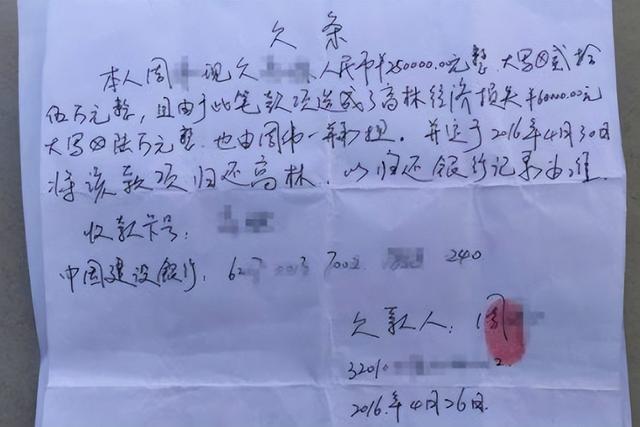 欠条
本人周 现欠 人民币¥250000.00元整 大写⊗贰拾
伍万元整,且由于此笔款项造成了高林经济损失¥60000.00元
大写⊗陆万元整.也由周伟一并承担.并定于2016年4月30日
将该款项归还高林.以归还银行记录为准.
收款卡号:
中国建设银行: 62 700 240
欠款人:周
3201 2
2016年4月26日